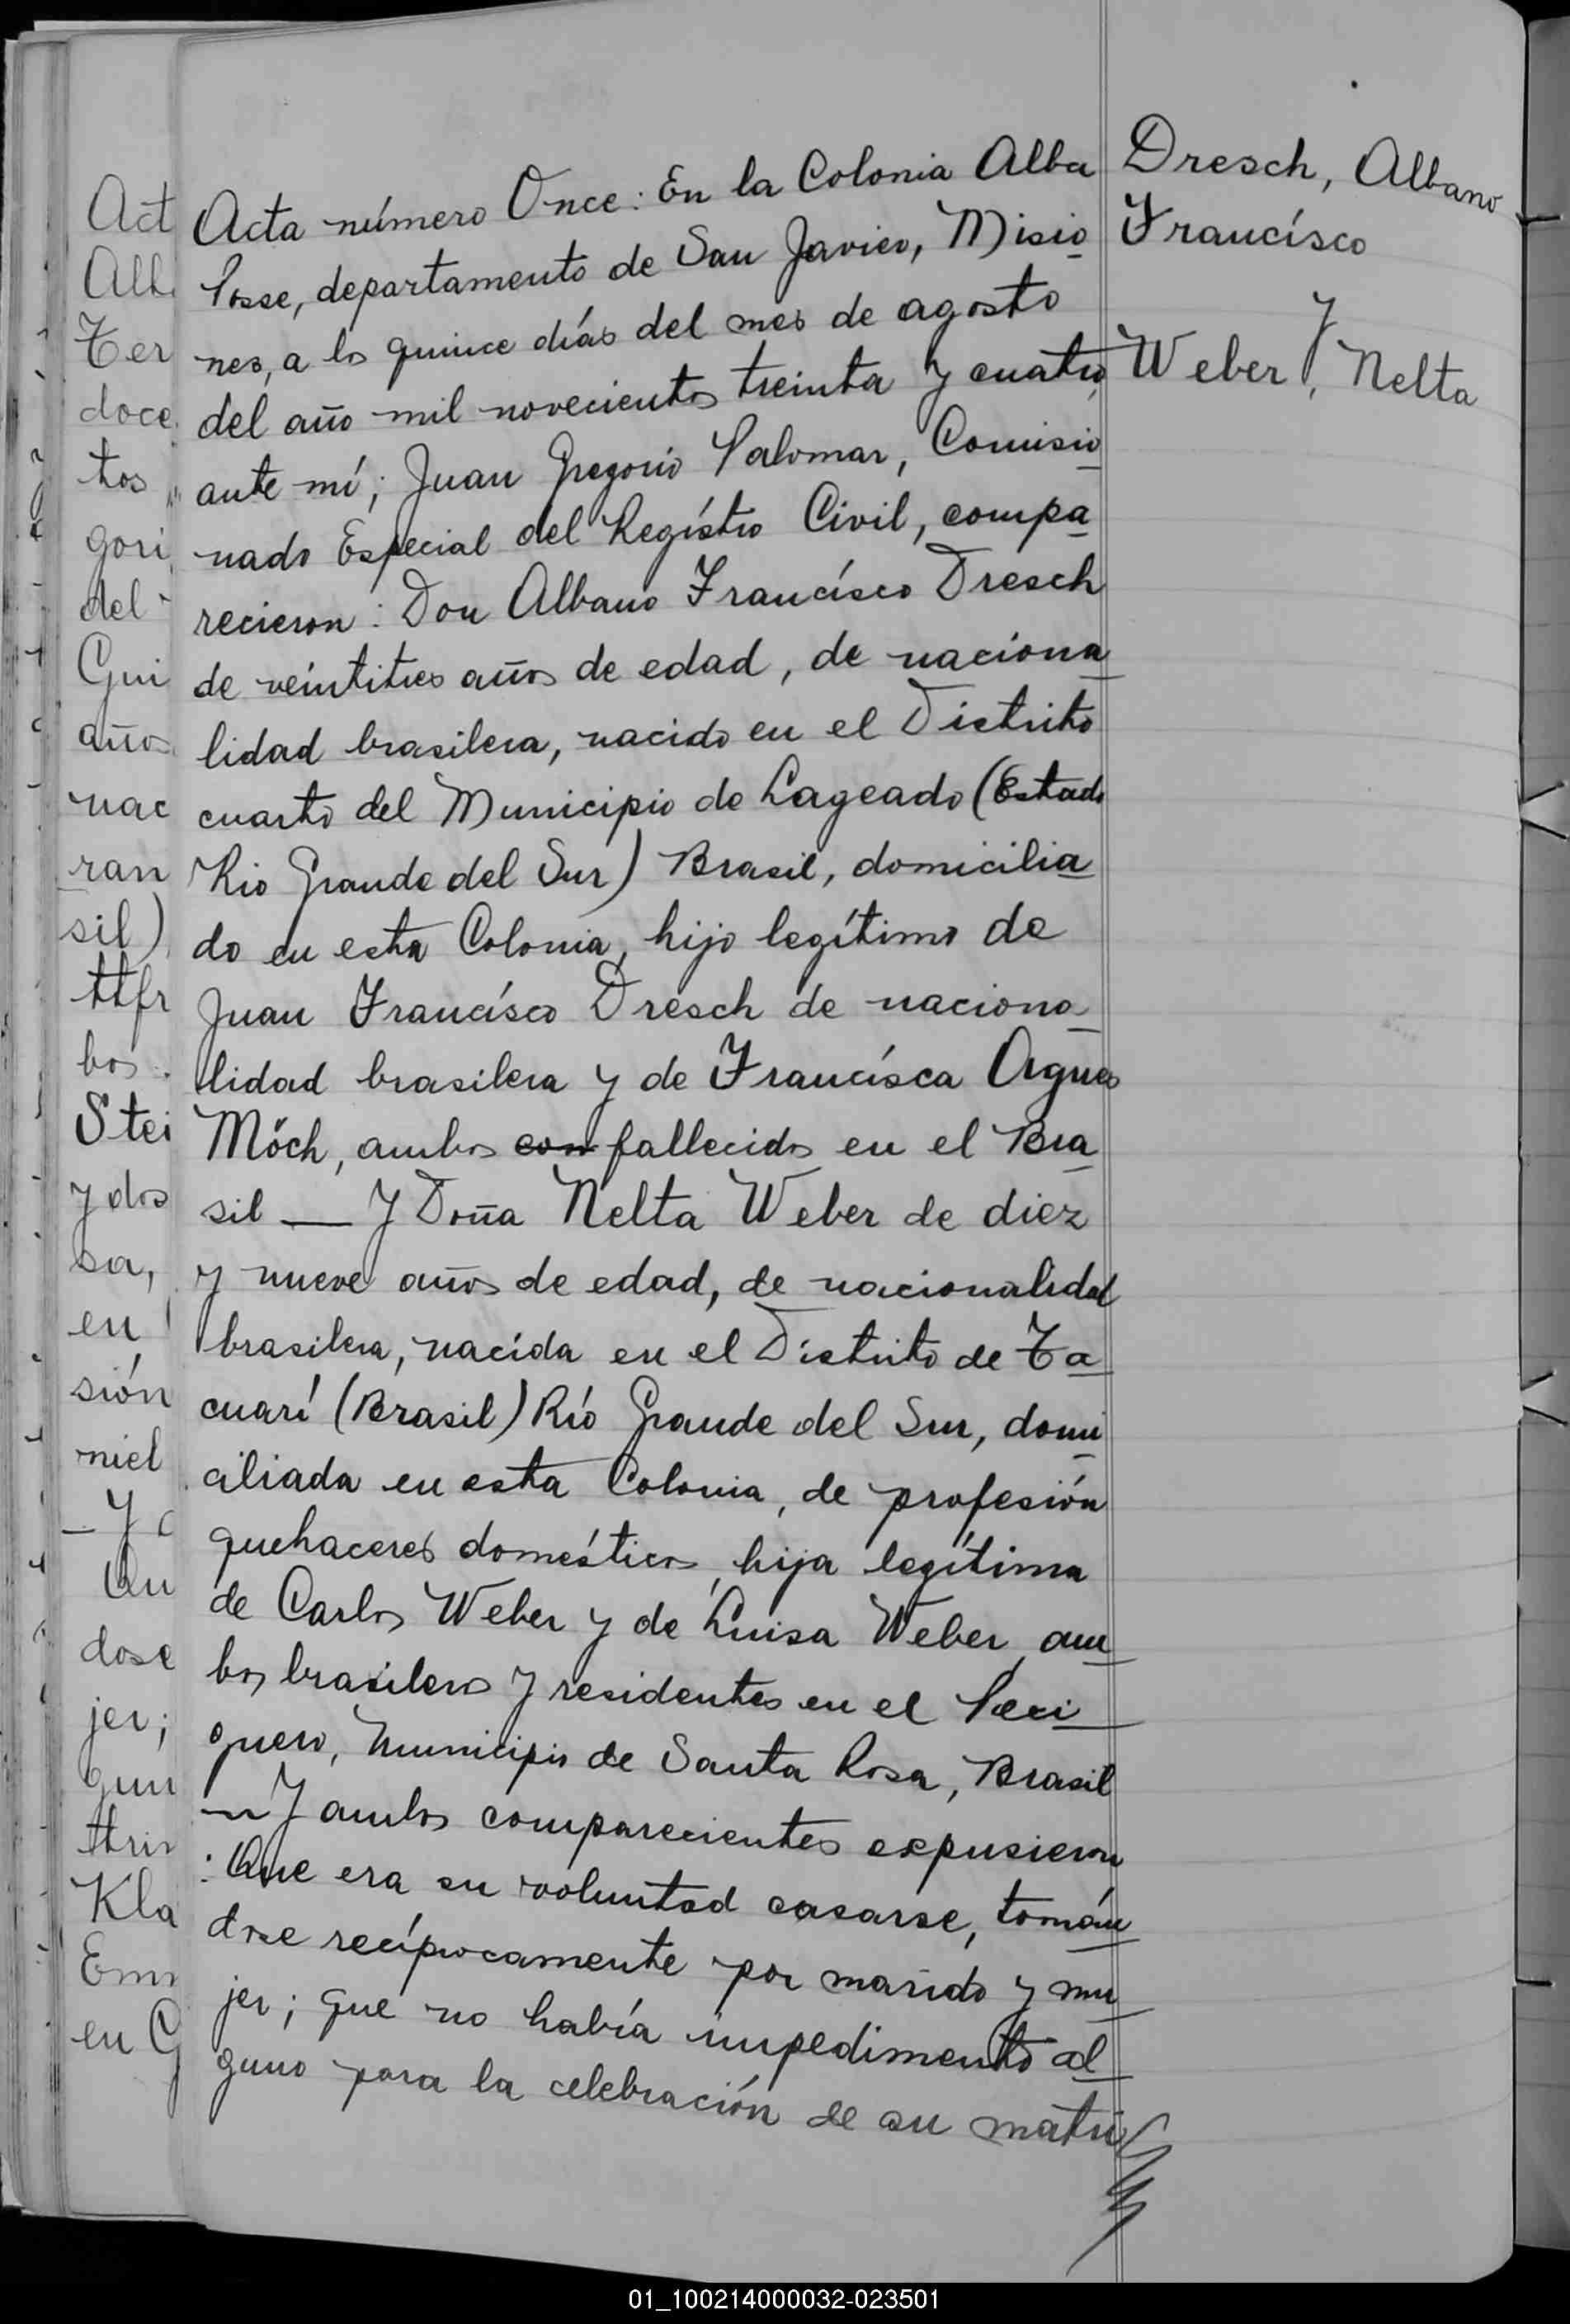 Acta número Once: En la Colonia Alba
Posse, departamento de San Javier, Misio
nes, a los quince días del mes de agosto
del año mil novecientos treinta y cuatro,
ante mí; Juan Gregorio Palomar, Comisio
nado Especial del Regístro Civil, compa
recieron: Don Albano Francísco Dresch
de veintitres años de edad, de naciona
lidad brasilera, nacido en el Distrito
cuarto del Municipio de Lageado (Estado
Rio Grande del Sur) Brasil, domicilia
do en esta Colonia, hijo legítimo de
Juan Francísco Dresch de naciona
lidad brasilera y de Francísca Agnes
Möch, ambos con fallecidos en el Bra
sil — Y Doña Nelta Weber de diez
y nueve años de edad, de nacionalidad
brasilera, nacída en el Distrito de Ta
cuarí (Brasil) Río Grande del Sur, domi
ciliada en esta Colonia, de profesión
quehaceres domésticos, hija legítima
de Carlos Weber y de Luisa Weber, am
bos brasileros y residentes en el
Municipio de Santa Rosa, Brasil
Y ambos comparecientes expusieron
: Que era su voluntad casarse, tomán
dose recíprocamente por marido y mu
jer; que no había impedimento al
guno para la celebración de su matri
Dresch, Albano
Francísco
y
Weber, Nelta
Act
Alb
Ter
doce
tos
gori
del
Gui
años
nac
ran
sil)
ttfr
bos
Stei
y dos
sa,
en
sión
niel
Y
Qu
dose
jer;
gun
ttri
Kla
Em
en G
01_100214000032-023501